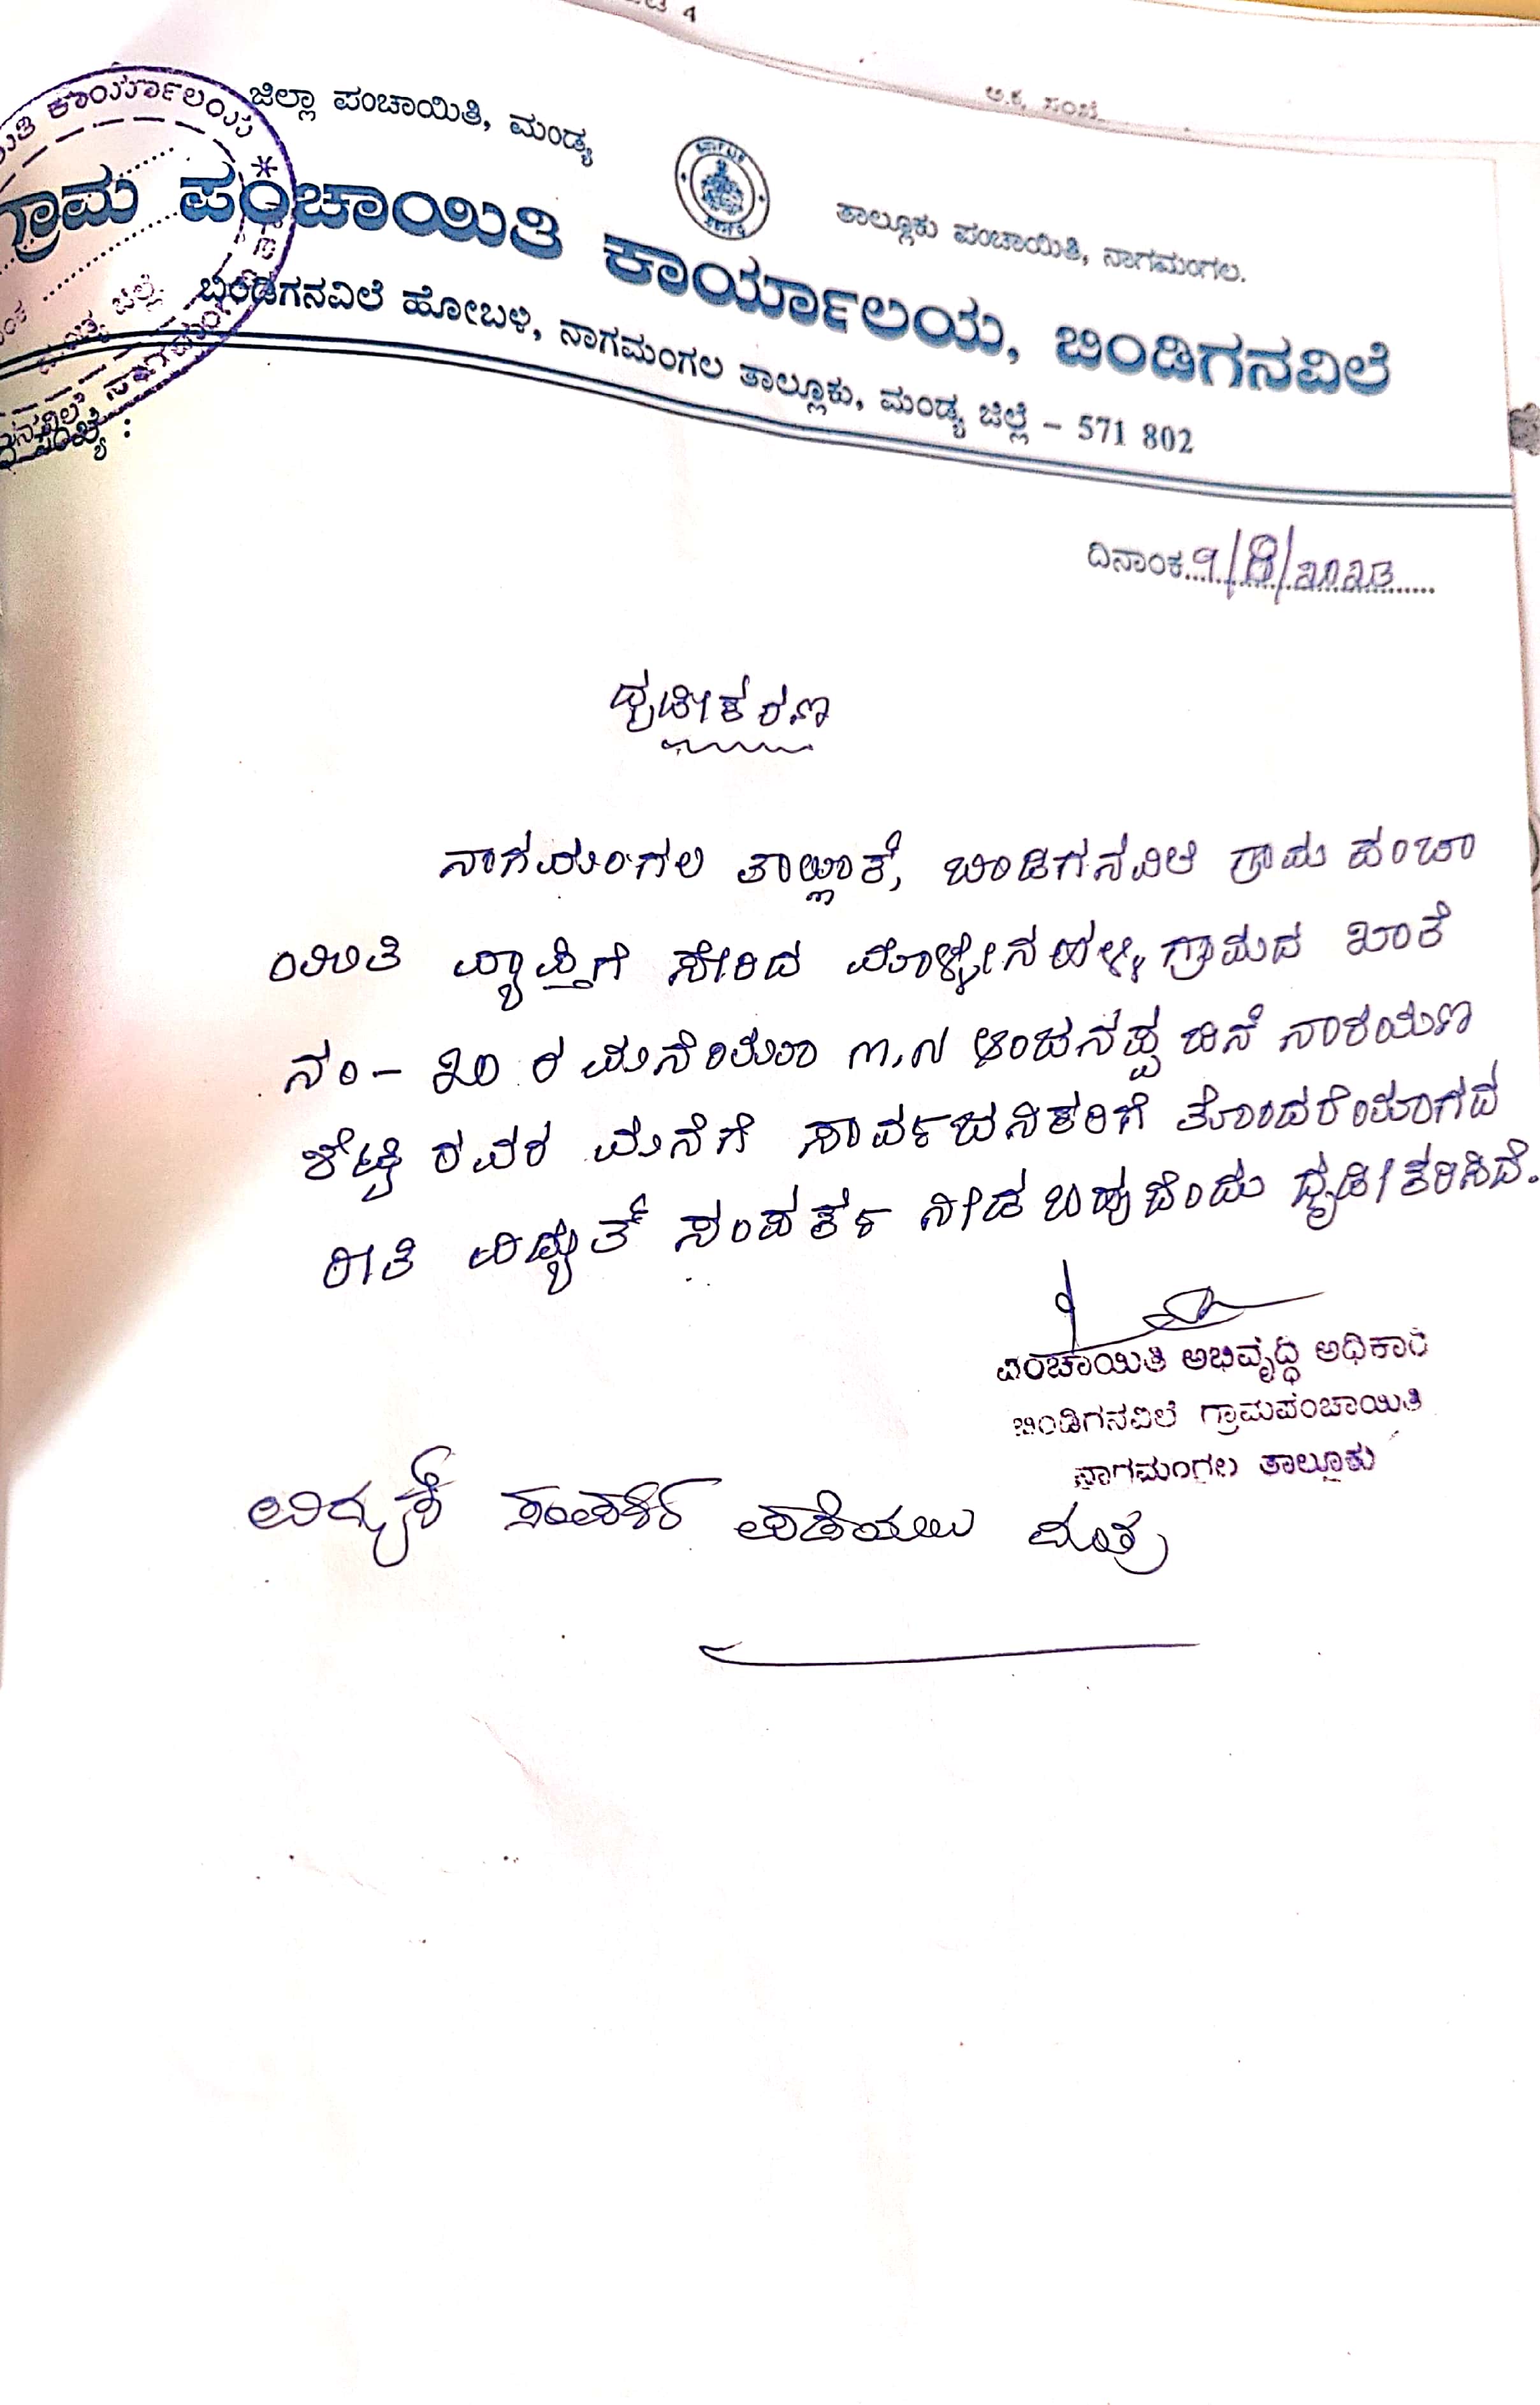 ಜಿಲ್ಲಾ ಪಂಚಾಯಿತಿ, ಮಂಡ್ಯ
ತಾಲ್ಲೂಕು ಪಂಚಾಯಿತಿ, ನಾಗಮಂಗಲ.
ಗ್ರಾಮ ಪಂಚಾಯಿತಿ ಕಾರ್ಯಾಲಯ, ಬಿಂಡಿಗನವಿಲೆ
ಬಿಂಡಿಗನವಿಲೆ ಹೋಬಳಿ, ನಾಗಮಂಗಲ ತಾಲ್ಲೂಕು, ಮಂಡ್ಯ ಜಿಲ್ಲೆ - 571 802
ದಿನಾಂಕ 9/8/2023
ದೃಢೀಕರಣ
ನಾಗಮಂಗಲ ತಾಲ್ಲೂಕ್, ಬಿಂಡಿಗನವಿಲೆ ಗ್ರಾಮ ಪಂಚಾ
ಯಿತಿ ವ್ಯಾಪ್ತಿಗೆ ಸೇರಿದ ಗ್ರಾಮದ ಖಾತೆ
ನಂ- 20 ರ ಮನೆಯು ಆಂಜನಪ್ಪ ಬಿನ್ ನಾರಯಣ
ಶೆಟ್ಟಿ ರವರ ಮನೆಗೆ ಸಾರ್ವಜನಿಕರಿಗೆ ತೊಂದರೆಯಾಗದ
ರೀತಿ ವಿದ್ಯುತ್ ಸಂಪರ್ಕ ನೀಡ ಬಹುದೆಂದು ದೃಢೀಕರಿಸಿದೆ.
ಪಂಚಾಯಿತಿ ಅಭಿವೃದ್ಧಿ ಅಧಿಕಾರಿ
ಬಿಂಡಿಗನವಿಲೆ ಗ್ರಾಮಪಂಚಾಯಿತಿ
ನಾಗಮಂಗಲ ತಾಲ್ಲೂಕು
ವಿದ್ಯುತ್ ಸಂಪರ್ಕ ಪಡೆಯಲು ಮಾತ್ರ